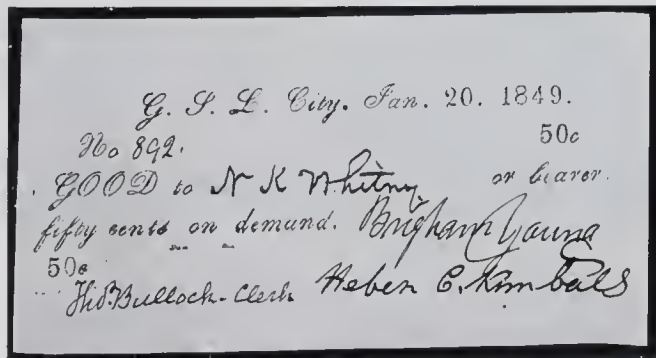 G. S. L. City. Jan. 20. 1849.
No 892. 50c
GOOD to N K Whitney or bearer.
fifty cents on demand. Brigham Young
50c
Tho.s Bullock-Clerk Heber C. Kimball